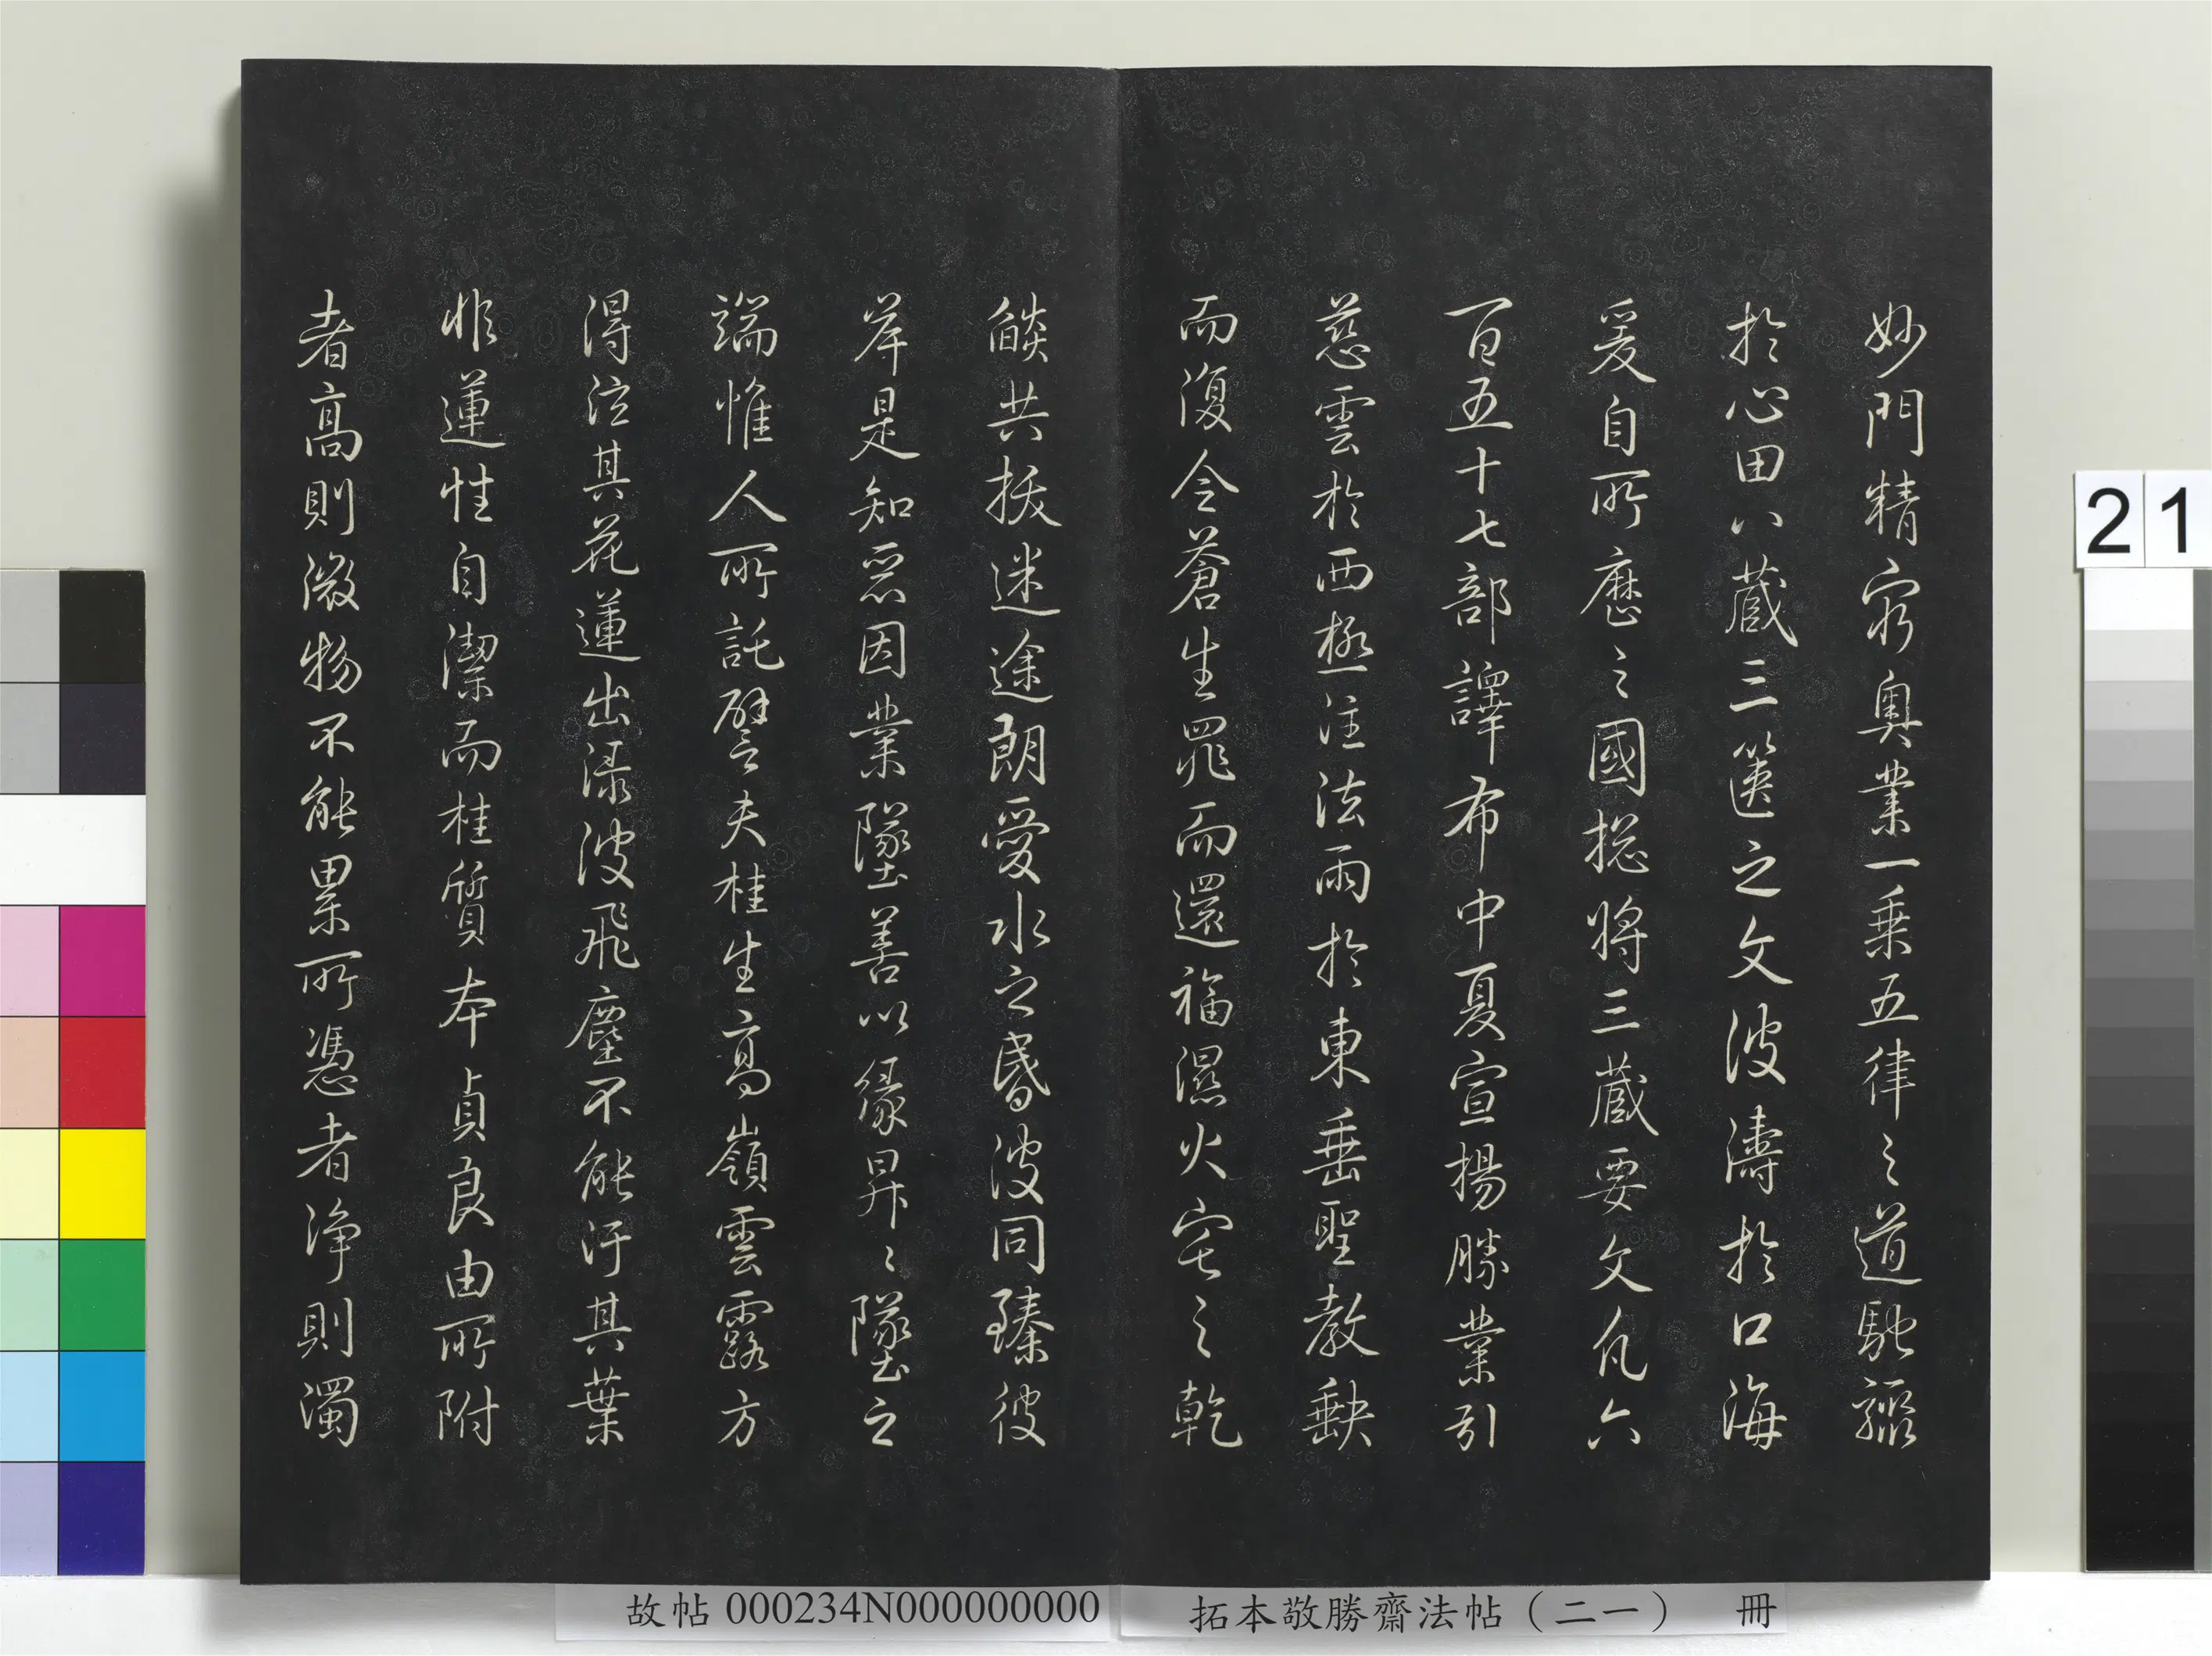 妙門精窮奧業一乗五律之道馳驟
於心田八藏三篋之文波濤於口海
爰自所歷之國揔將三藏要文凡六
百五十七部譯布中夏宣揚勝業引
慈雲於西極注法雨於東垂聖教缺
而復令蒼生罪而還福濕火宅之乾
燄共拔迷途朗愛水之昏波同臻彼
岸是知惡因業墜善以緣昇昇墜之
端惟人所託譬夫桂生高嶺雲露方
得泫其花蓮出淥波飛塵不能汙其葉
非蓮性自潔而桂質本貞良由所附
者高則微物不能累所憑者淨則濁
21
故帖000234N000000000
拓本敬勝齋法帖（二一） 冊